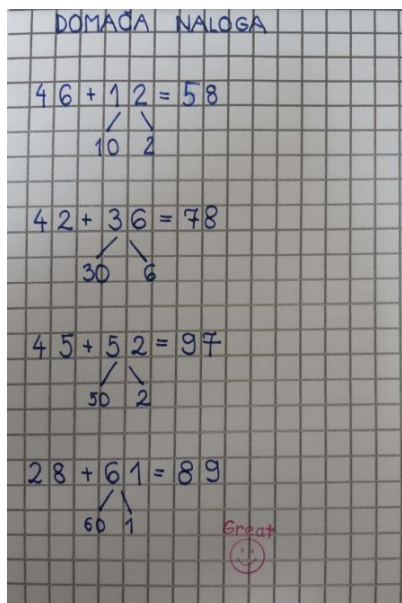 DOMAČA NALOGA
46+12=58
10 2
42+36=78
30 6
45+52=97
50 2
28+61=89
60 1
Great